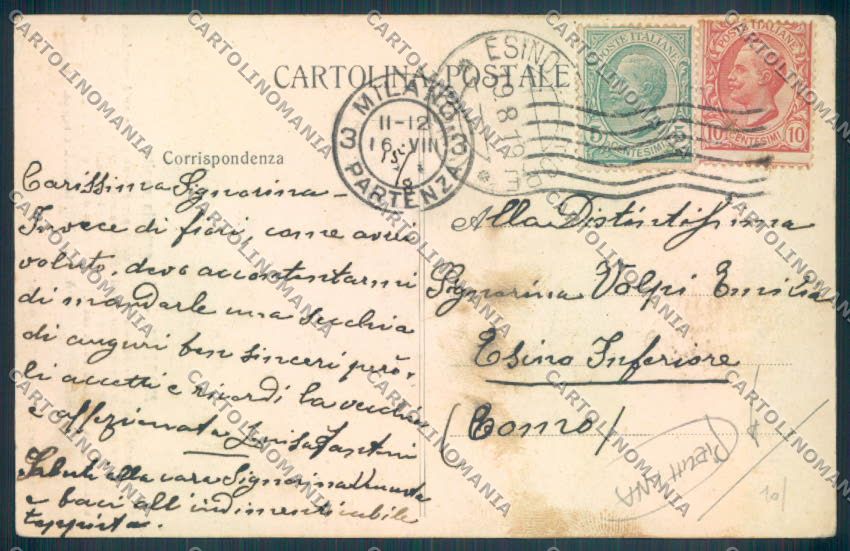 CARTOLINA POSTALE
MILANO
11-12
16 VIII
3 3
PARTENZA
ESINO
19.8.19
POSTE ITALIANE
5 5
CENTESIMI
POSTE ITALIANE
10 10
CENTESIMI
Corrispondenza
Carissima Signorina -
Invece di fiori, come avrei
voluto, devo accontentarmi
di mandarle una secchia
di auguri ben sinceri però,
li accetti e ricordi la vecchia
e affezionata Luisa Fantini
Saluti alla cara Signorina
e baci all'indimenticabile
Alla Distintissima
Signorina Volpi Emilia
Esino Inferiore
(Como)
10/
CARTOLINOMANIA